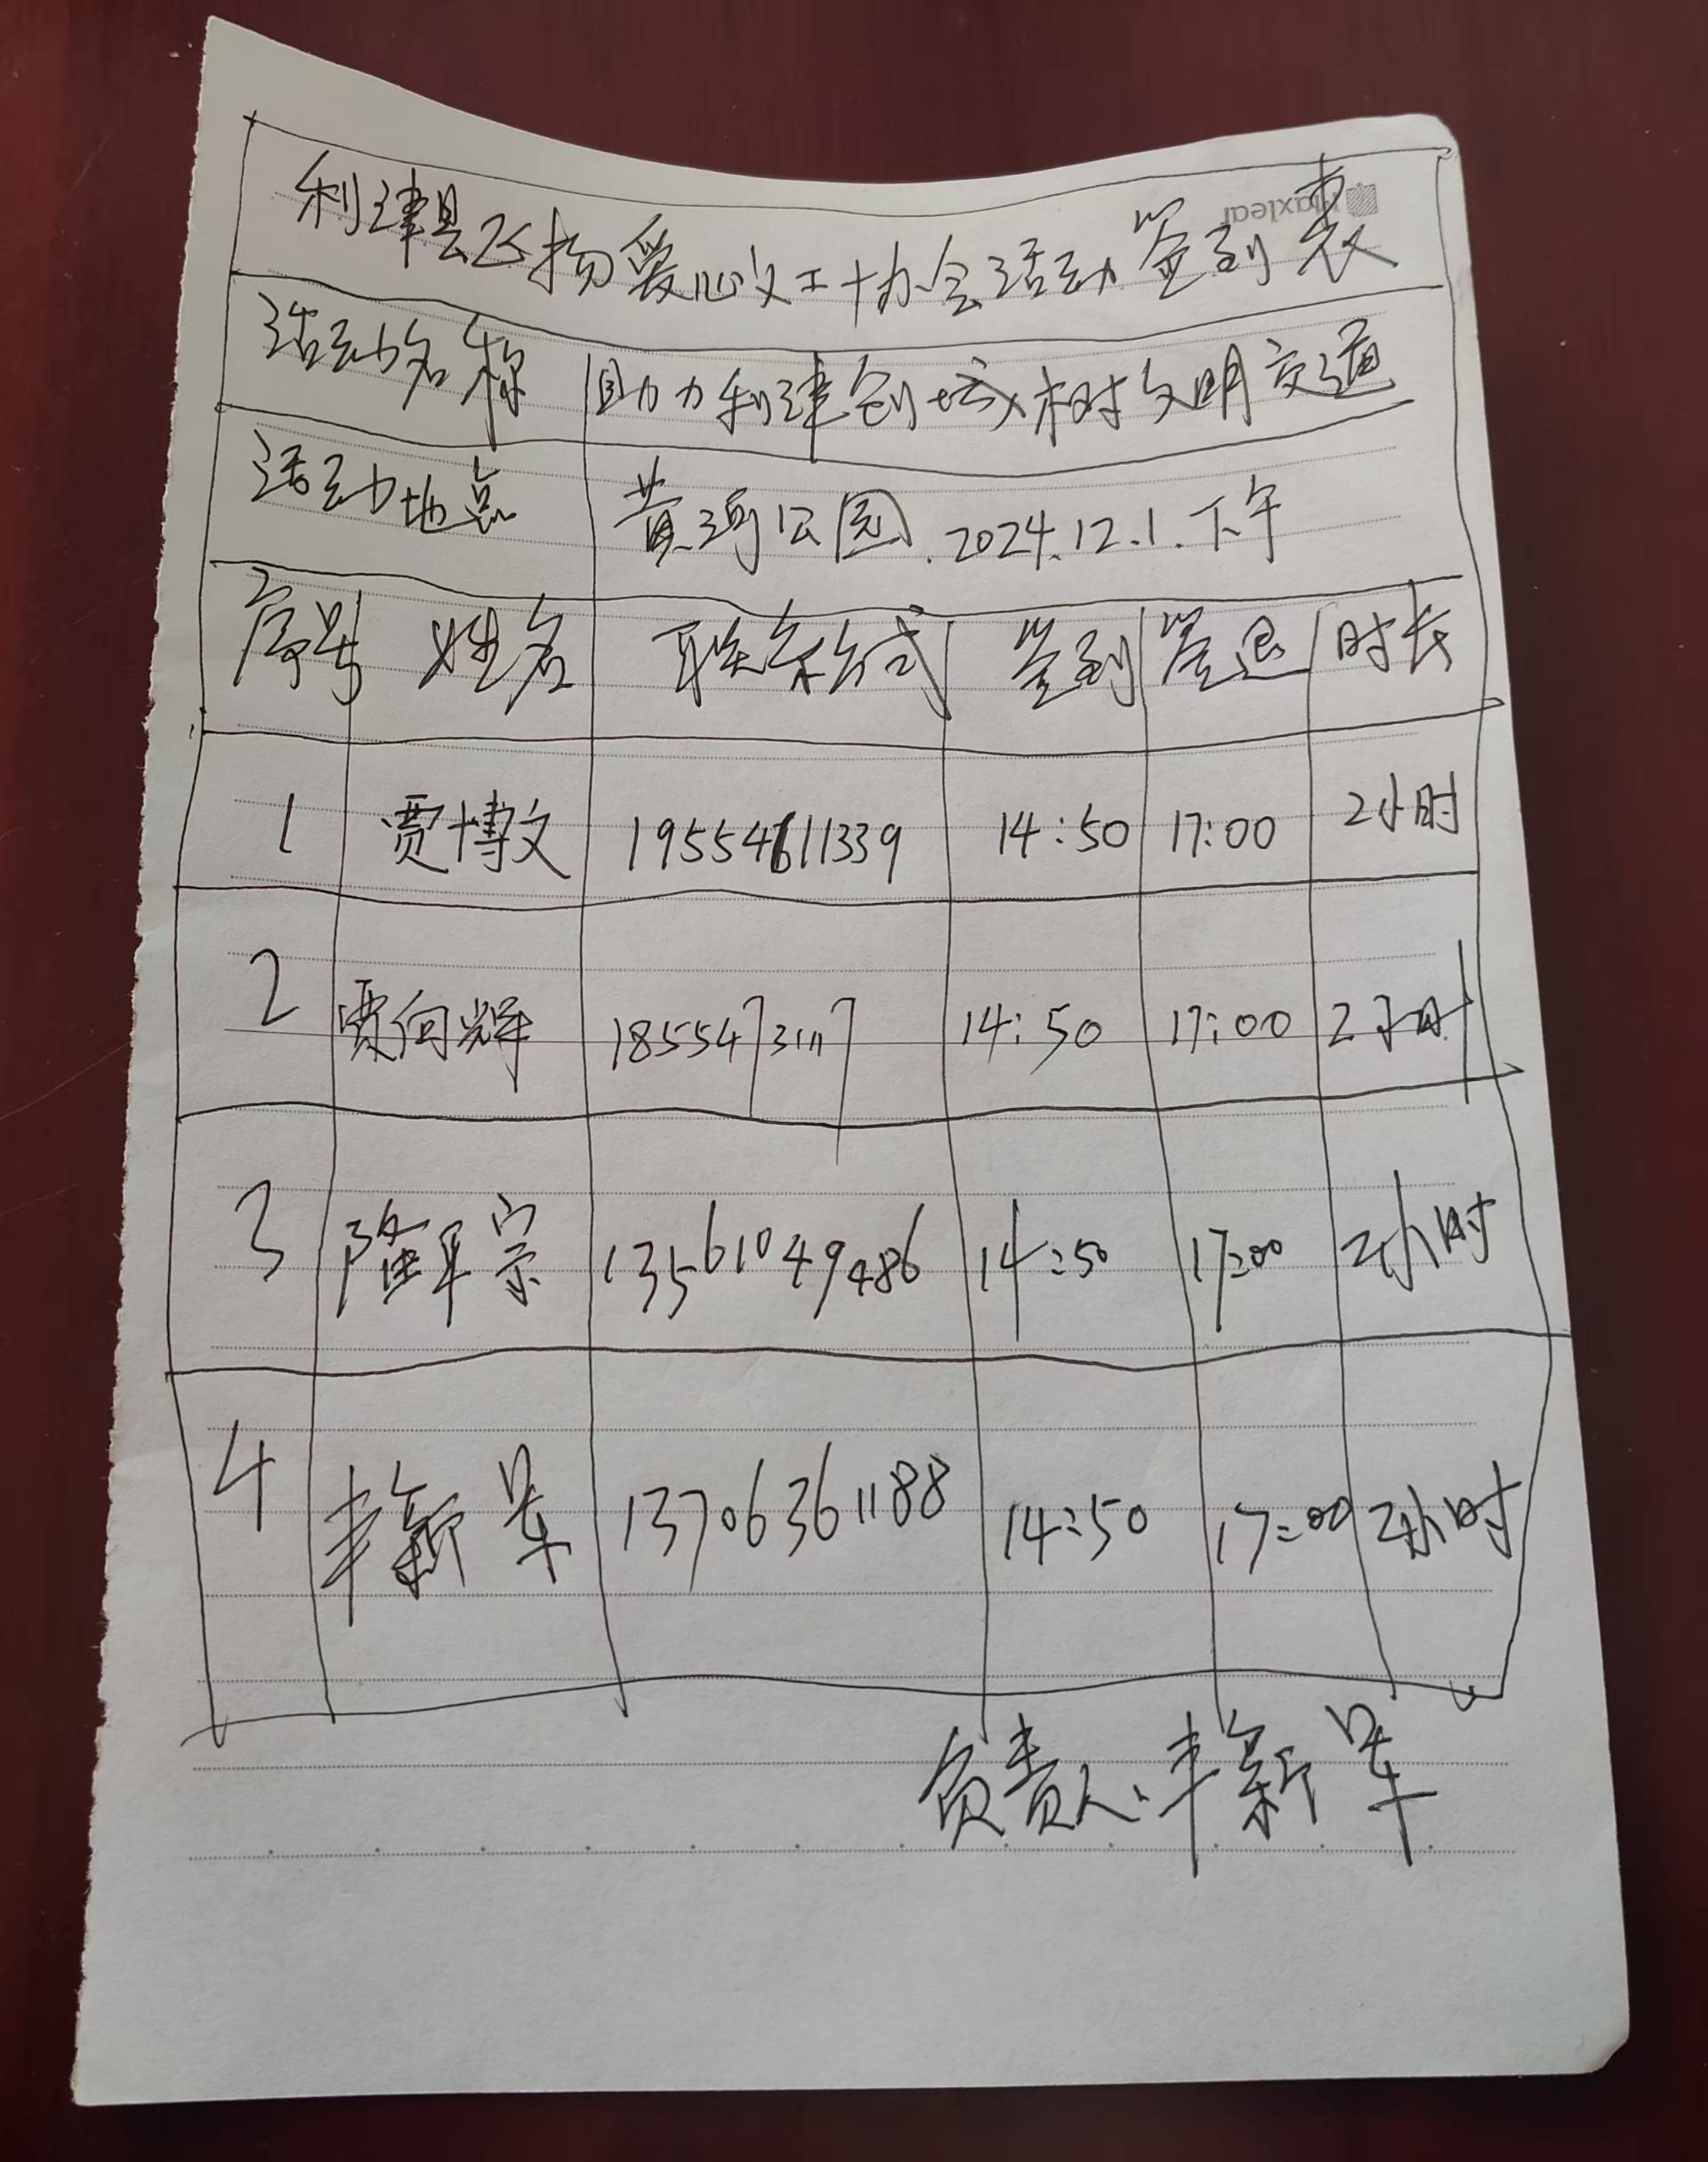 Maxleaf
利津县飞扬爱心义工协会活动签到表
活动名称 助力利津创城 树文明交通
活动地点 黄河公园.2024.12.1.下午
序号 姓名 联系方式 签到 签退 时长
1 贾博文 19554611339 14:50 17:00 2小时
2 贾向辉 18554731117 14:50 17:00 2小时
3 隆军宗 13561049486 14:50 17:00 2小时
4 丰新 13706361188 14:50 17:00 2小时
负责人:丰新